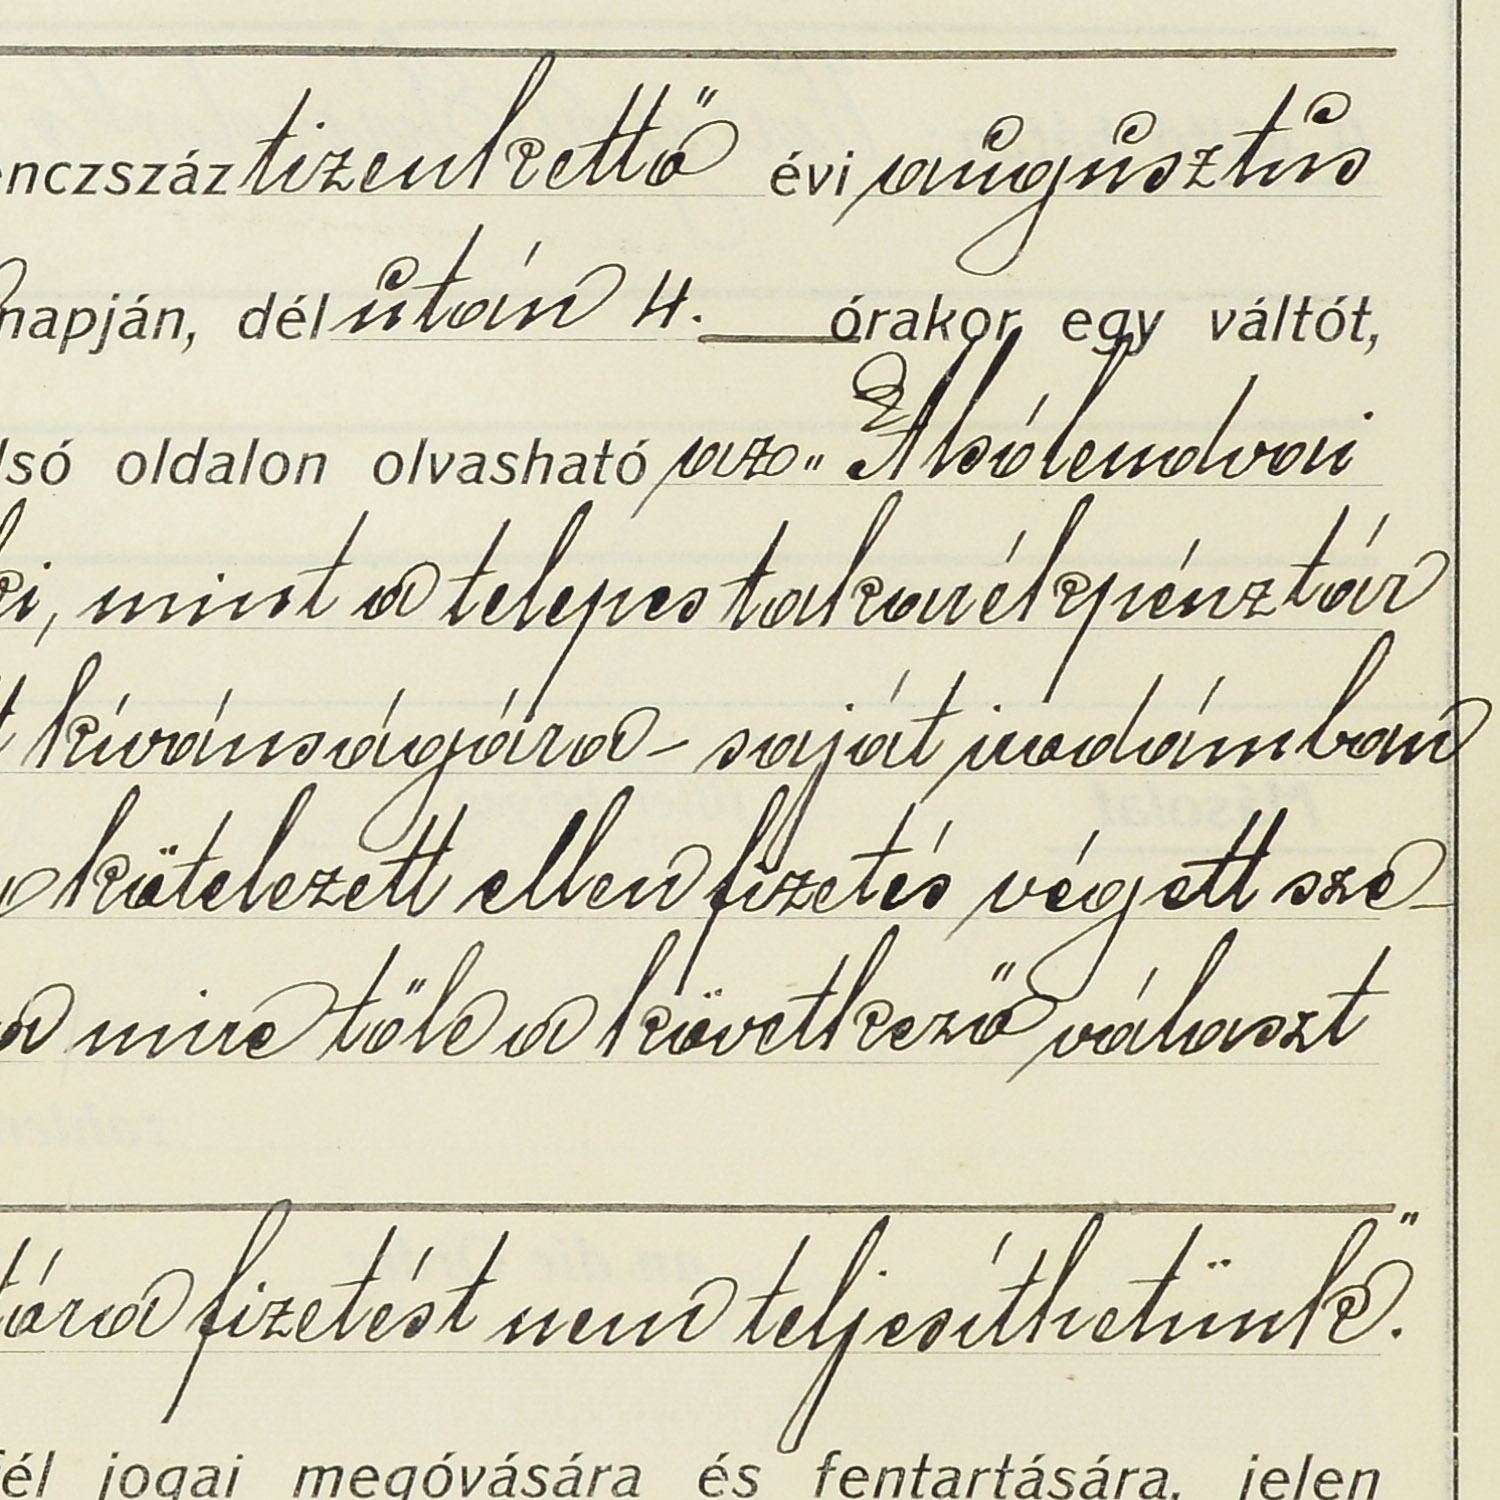 enczszáz tizenkettő évi augusztus
napján, dél után 4. órakor egy váltót,
lsó oldalon olvasható az „Alsólendvai
ki, mint a telepes takarékpénztár
t kívánságára – saját irodámban
kötelezett ellen fizetés végett sze-
a mire tőle a következő választ
tára fizetést nem teljesíthetünk."
fél jogai megóvására és fentartására, jelen